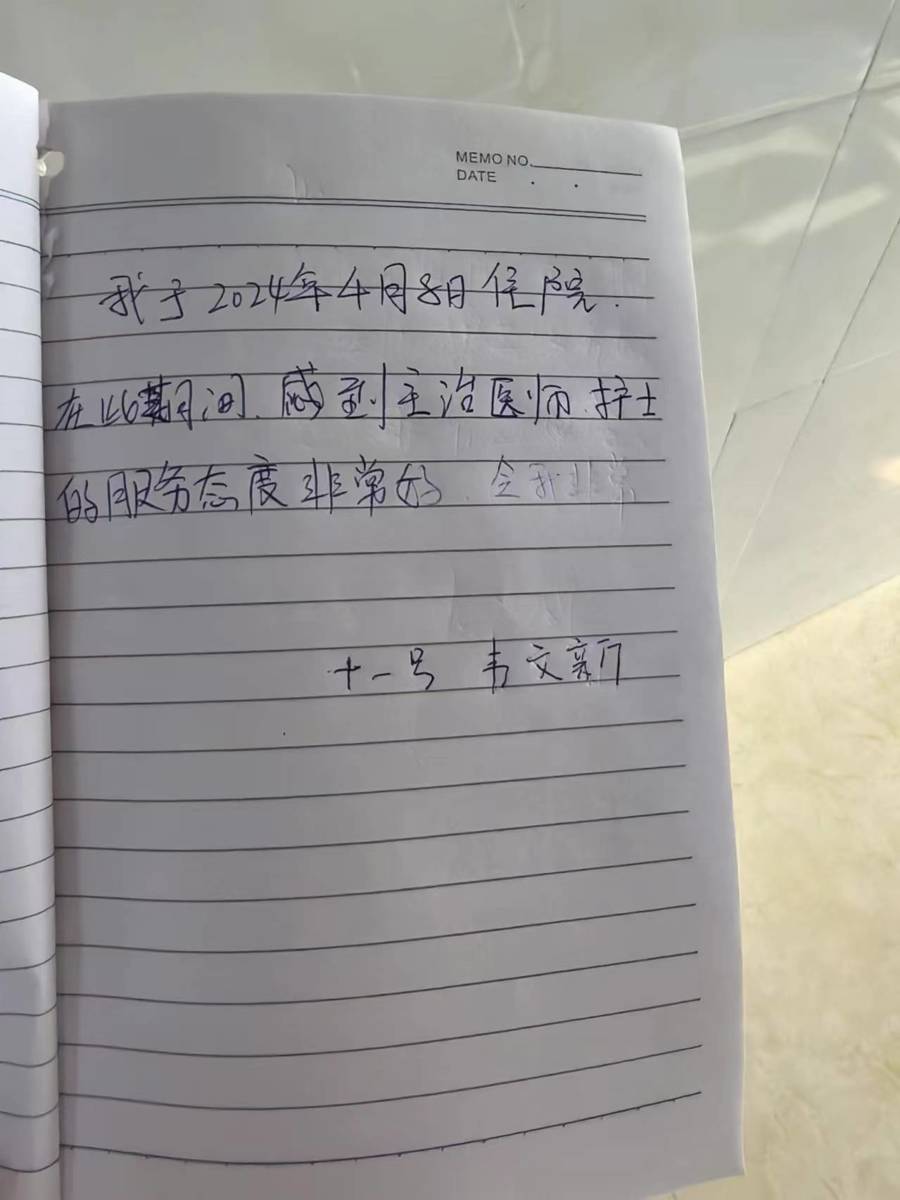 MEMO NO.
DATE . .
我于2024年4月8日住院.
在此期间.感到主治医师.护士
的服务态度非常好.令我非常
十一号 韦文新